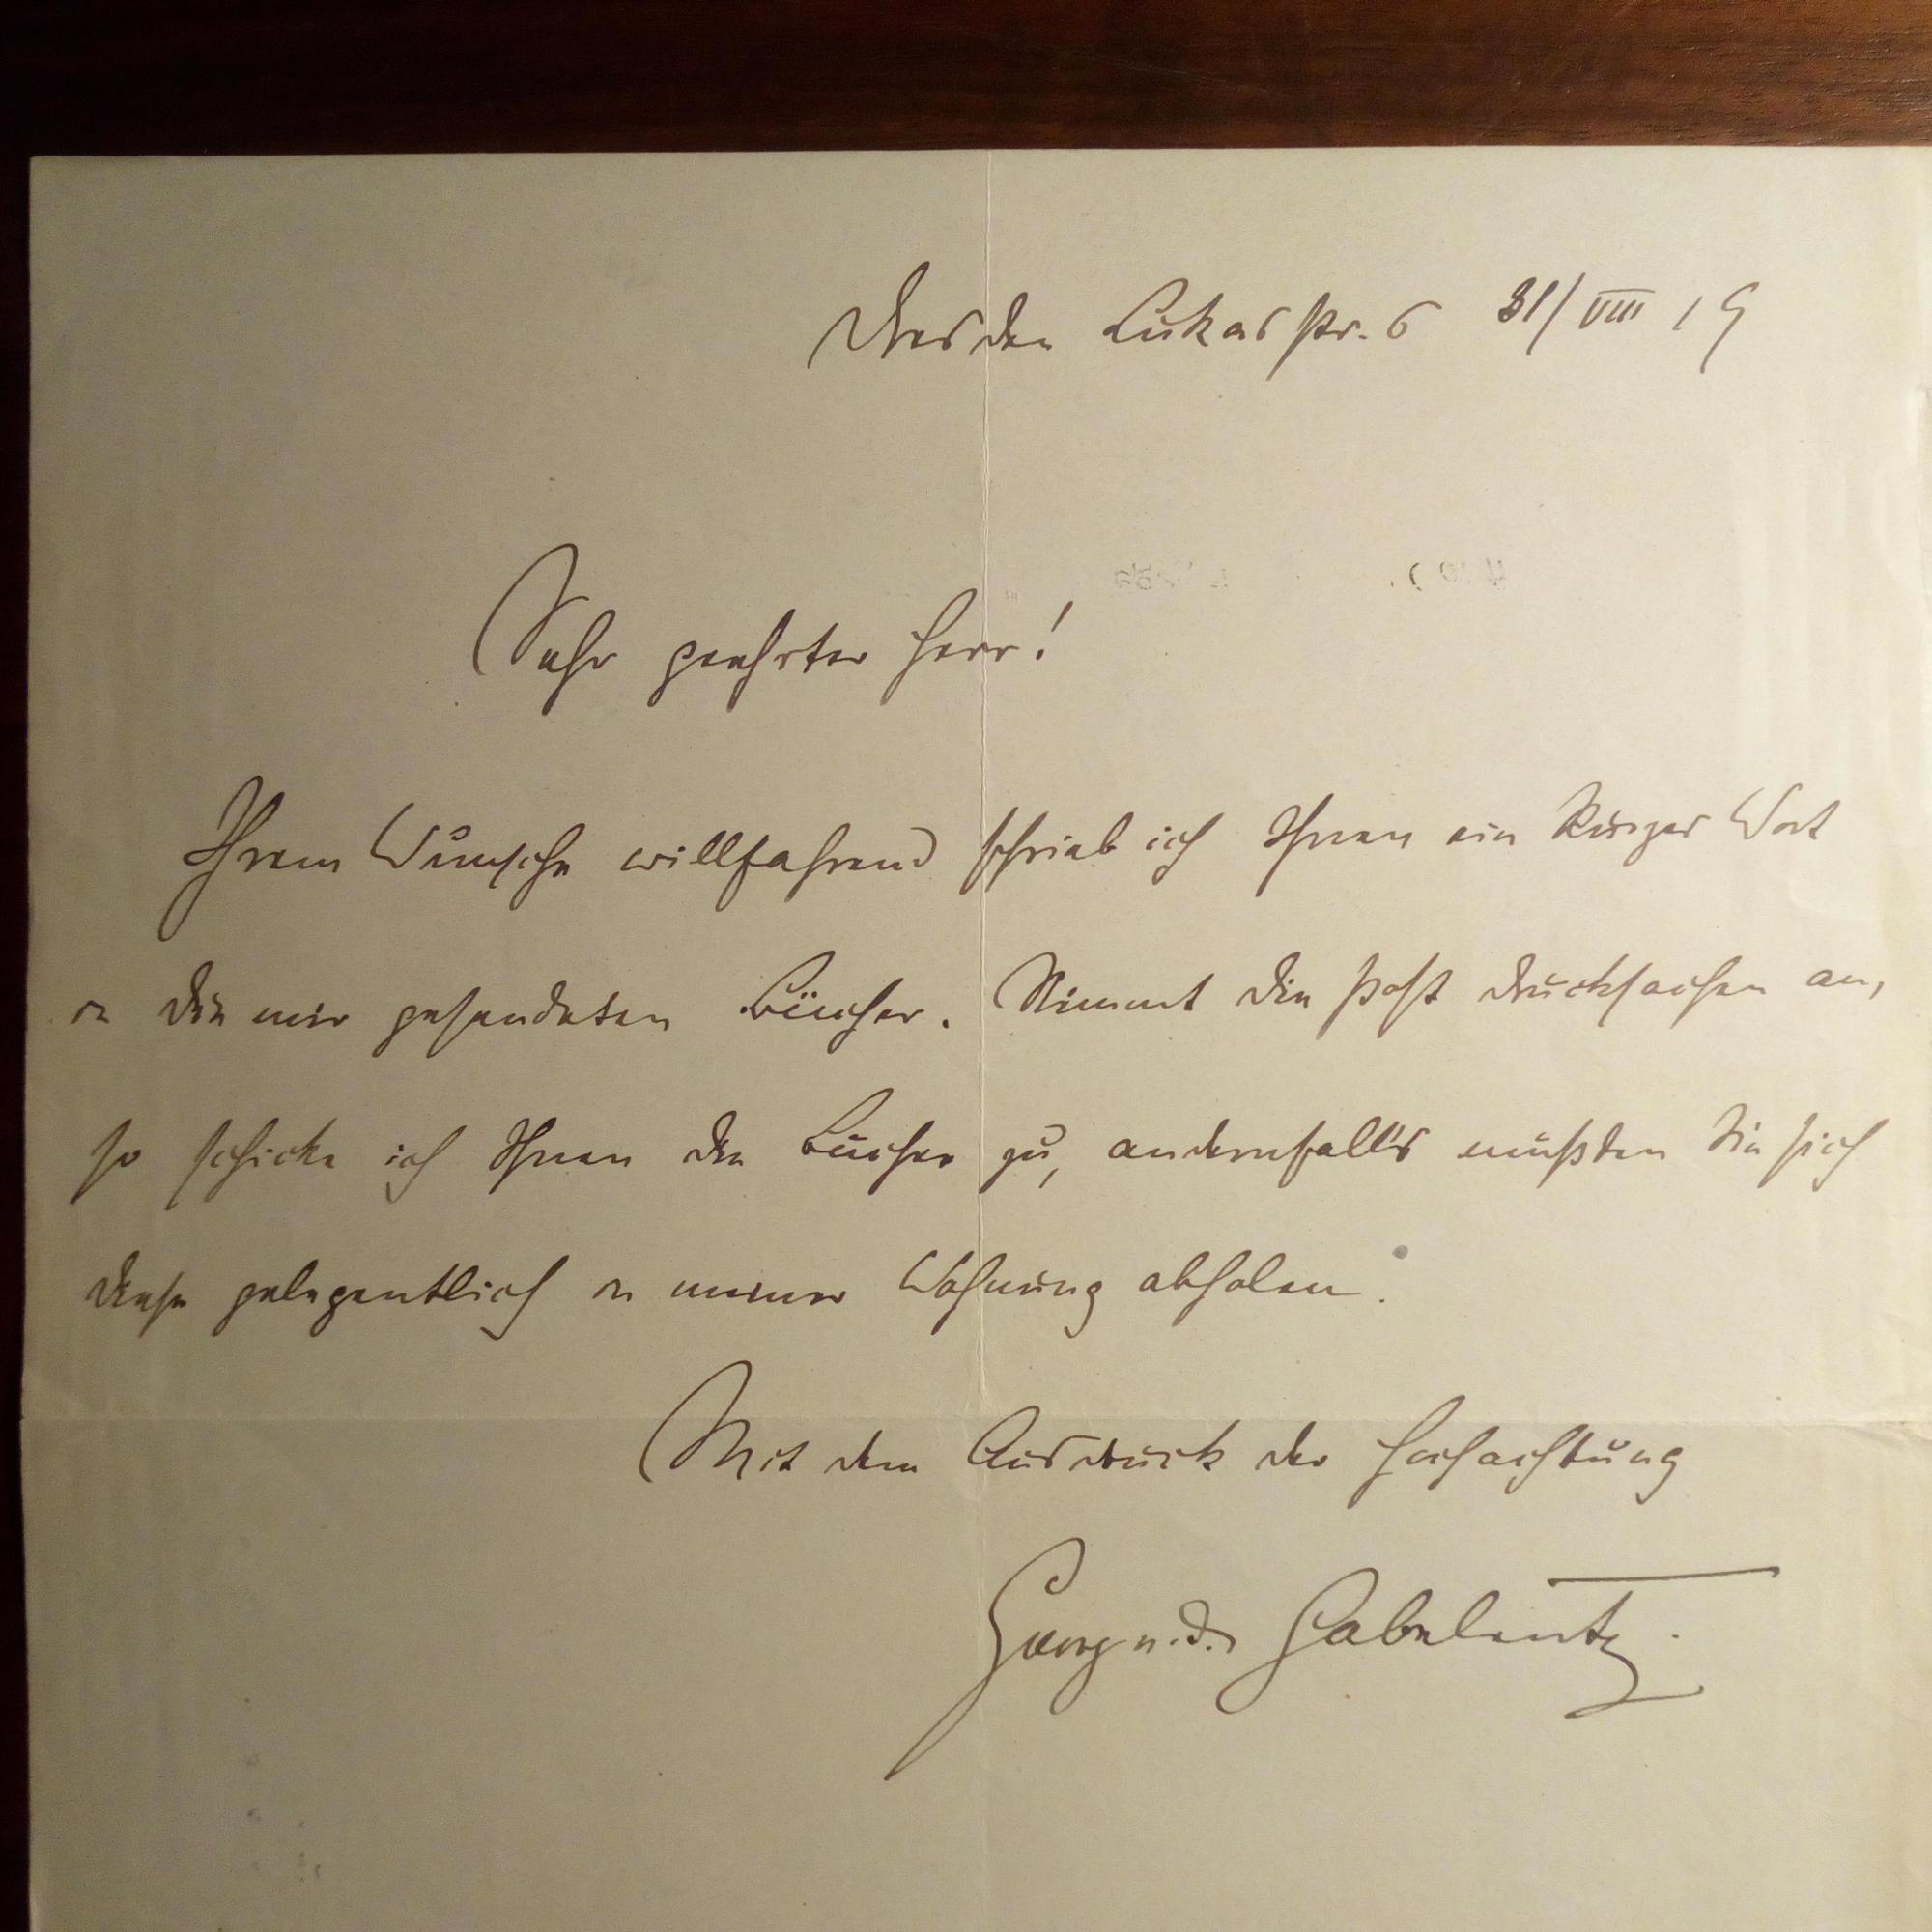 Dresden Lukasstr. 6 31/VIII 19
Sehr geehrter Herr!
Ihrem Wunsche willfahrend schrieb ich Ihnen ein kurzes Wort
in die mir gesendeten Bücher. Nimmt die Post Drucksachen an,
so schicke ich Ihnen die Bücher zu, andernfalls müßten Sie sich
diese gelegentlich in meiner Wohnung abholen.
Mit dem Ausdruck der Hochachtung
Georg v. d. Gabelentz.